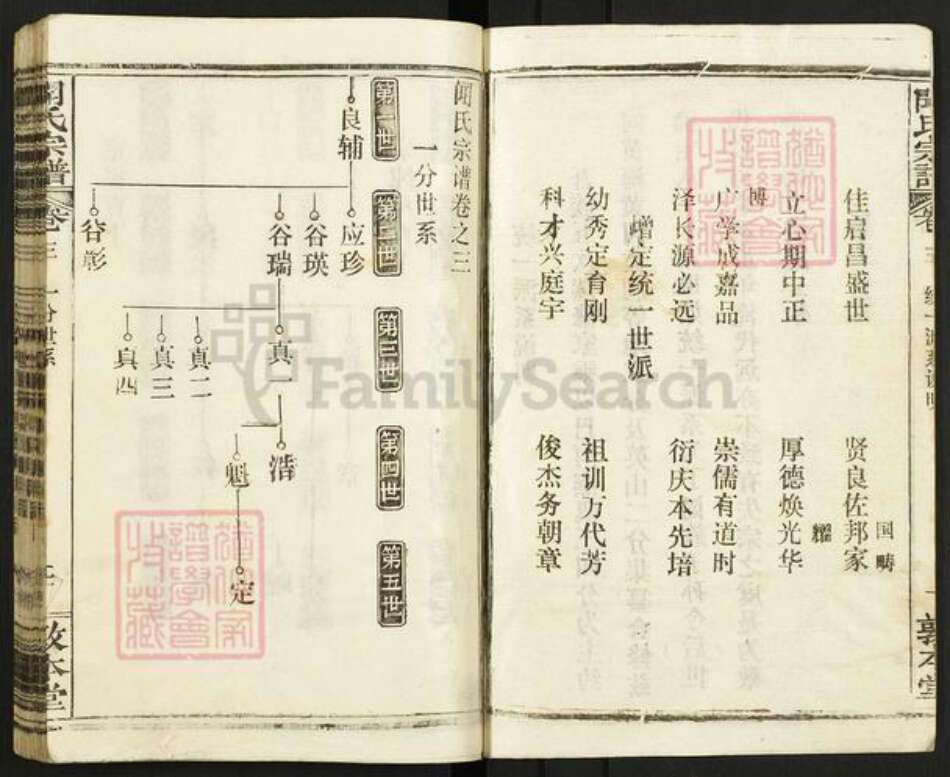 佳启昌盛世
贤良佐邦家
国畴
立心期中正
厚德焕光华
耀
博
广学成嘉品
崇儒有道时
泽长源必远
衍庆本先培
增定统一世派
幼秀定育刚
祖训万代芳
科才兴庭宇
俊杰务朝章
闻氏宗谱卷之三
一分世系
第一世
第二世
第三世
第四世
第五世
良辅
应珍
谷瑛
谷瑞
谷彰
真一
真二
真三
真四
浩
魁
定
闻氏宗谱
卷三
一分世系
敦本堂
FamilySearch